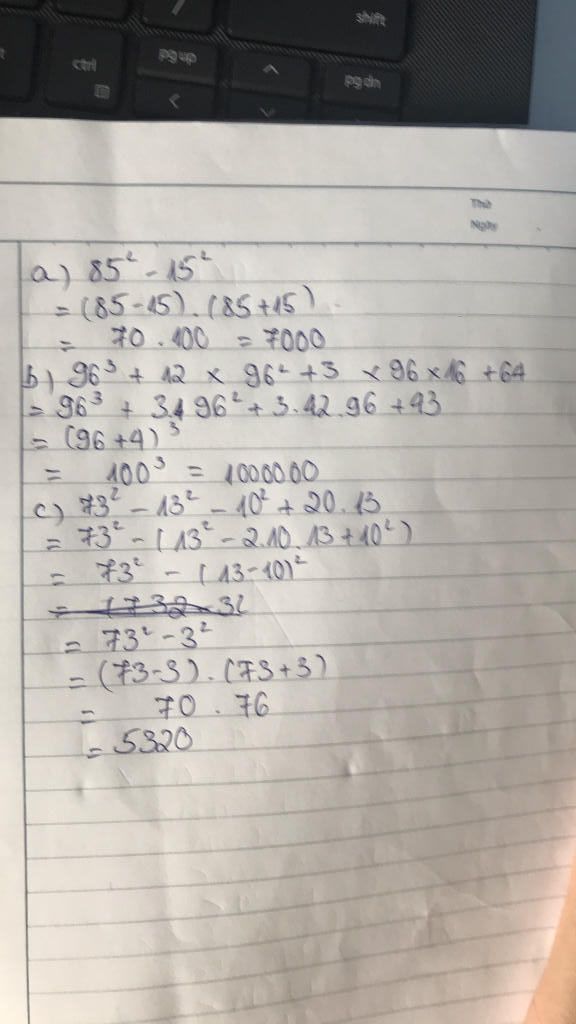 shift
ctrl
pg up
pg dn
Thứ
Ngày
a) 85² - 15²
= (85-15) . (85+15)
= 70 . 100 = 7000
b) 96³ + 12 × 96² + 3 × 96 × 16 + 64
= 96³ + 3.4 96² + 3.42.96 + 43
= (96+4)³
= 100³ = 1000000
c) 73² - 13² - 10² + 20.13
= 73² - (13² - 2.10.13 + 10²)
= 73² - (13-10)²
= 73² - 3²
= (73-3) . (73+3)
= 70 . 76
= 5320